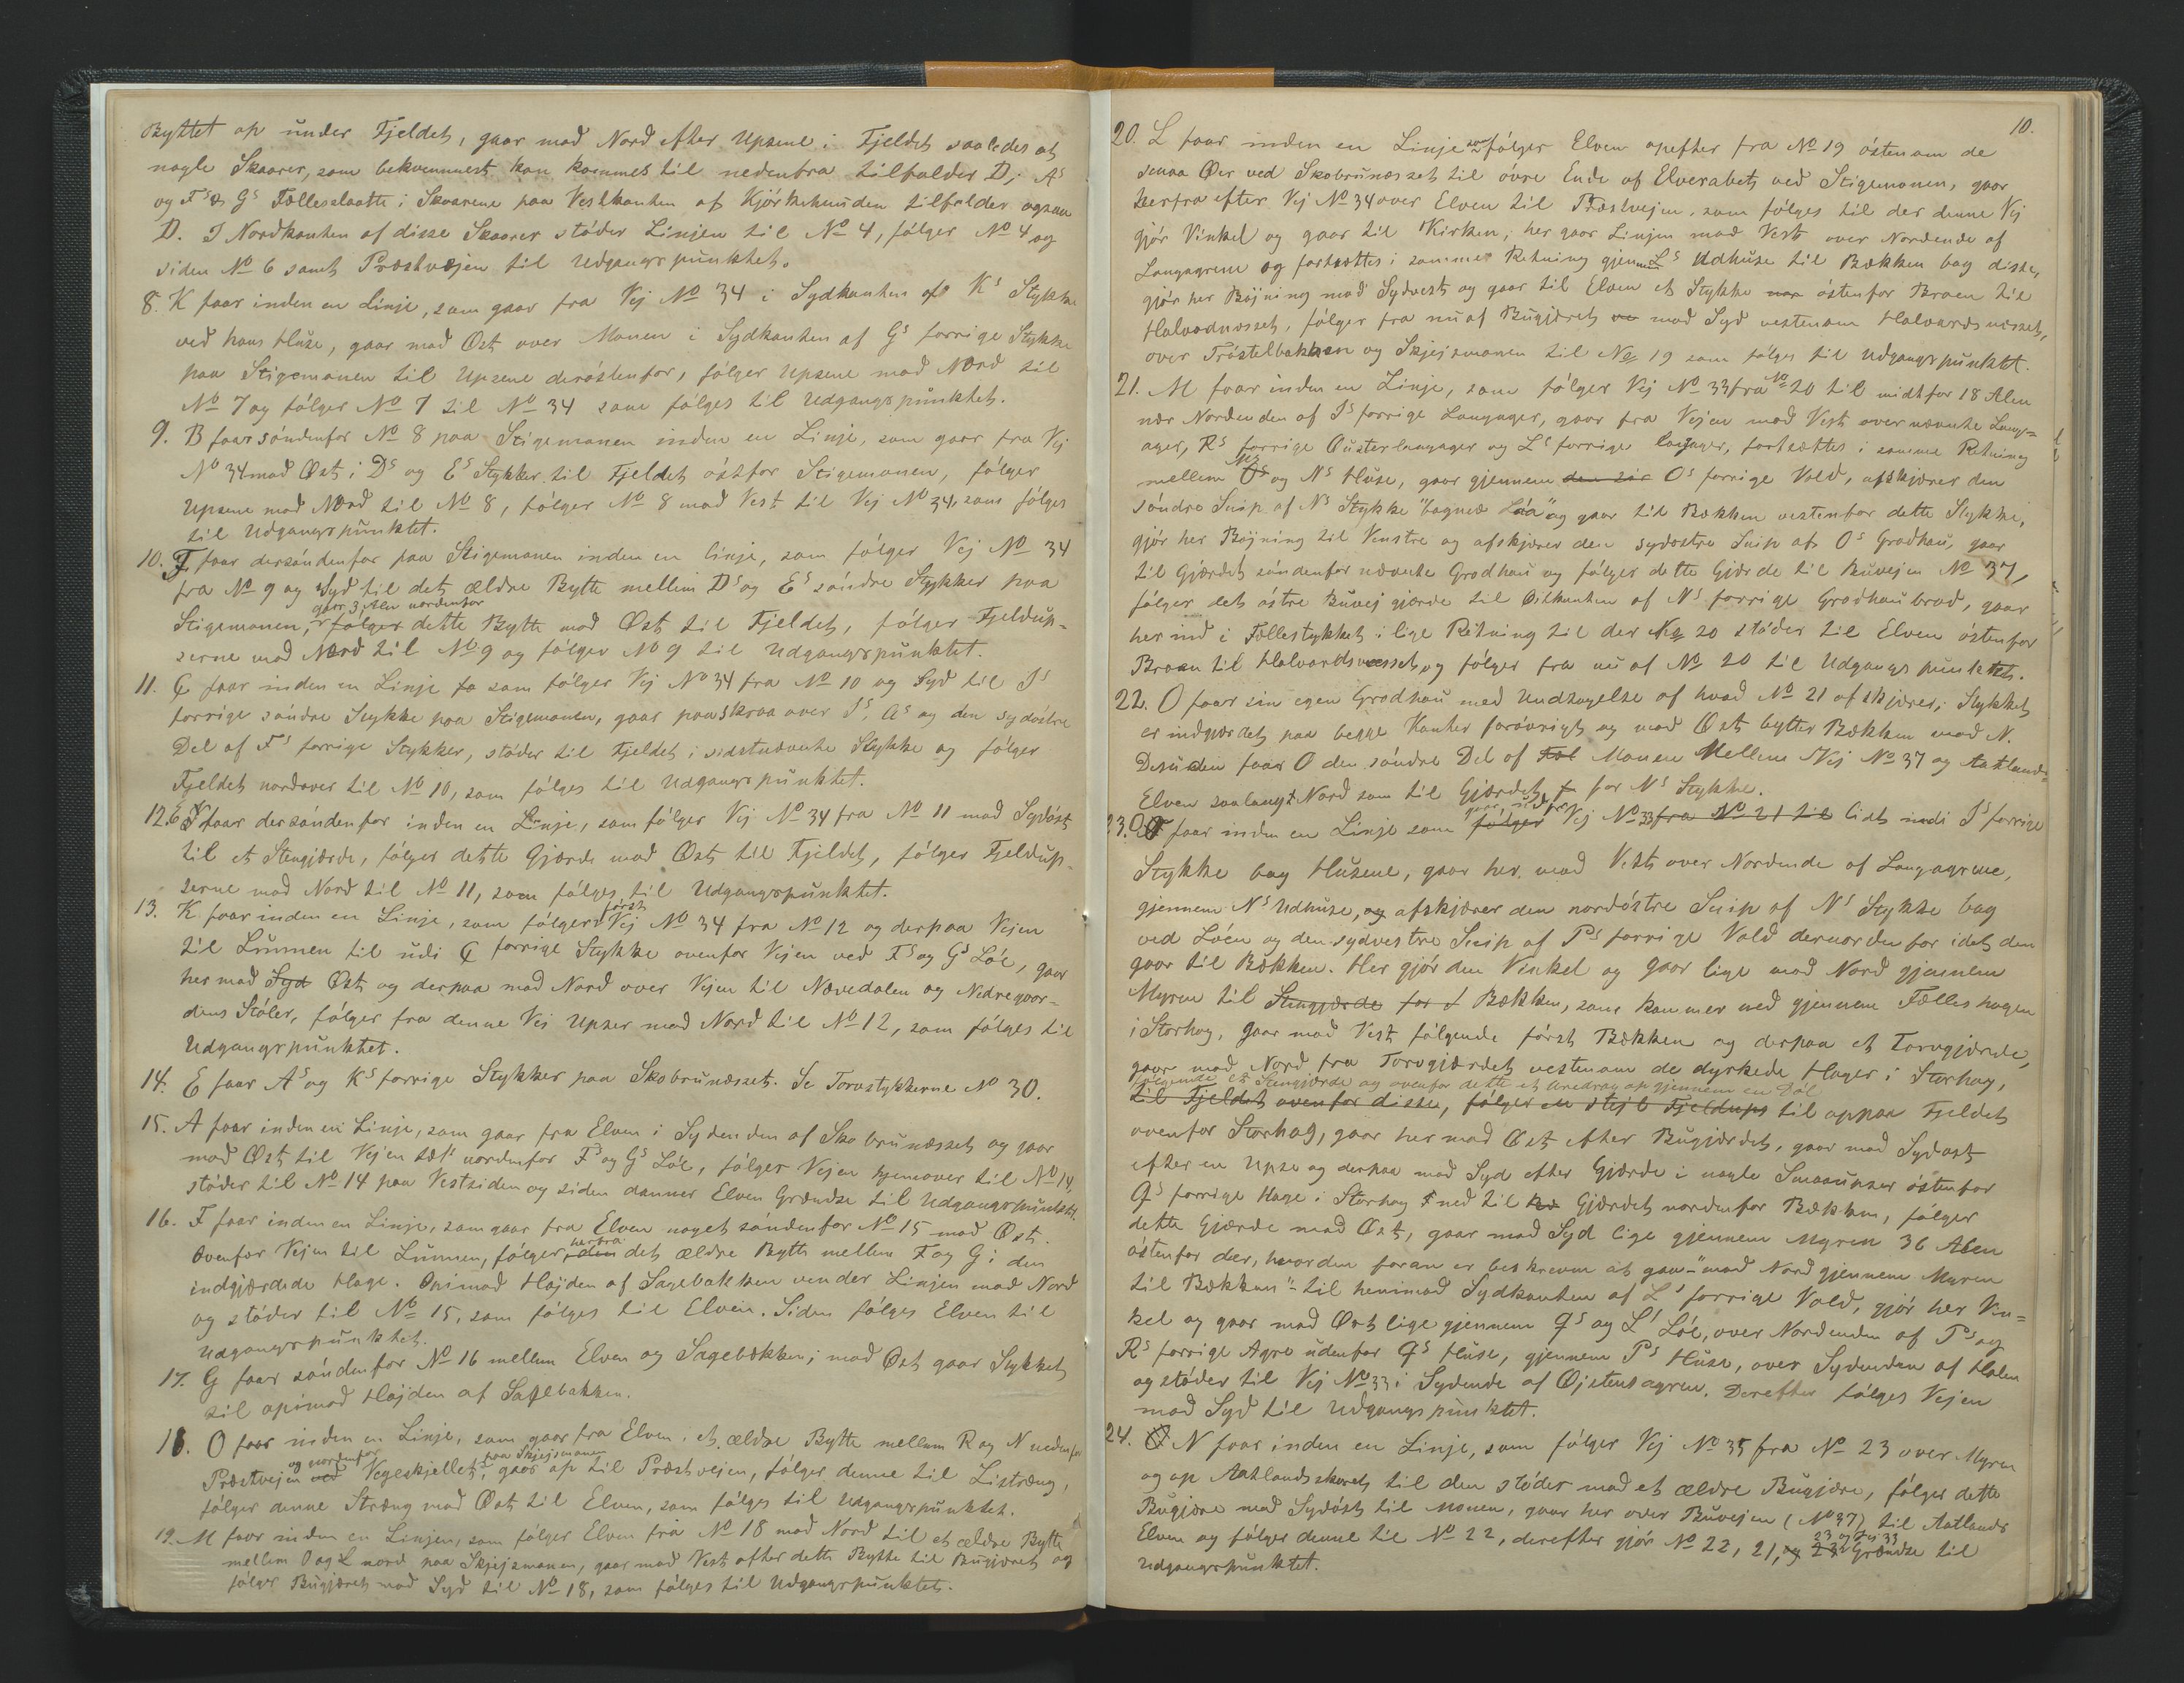 Byttet op under Fjeldet, gaar mod Nord efter Upsene i Fjeldet saaledes at
nogle Skaarer, som bekvemmest kan kommes til nedenfra tilfalder D; As
og Fs & Gs Fællesslaatte i Skaarene paa Vestkanten af Kjörkehuiden tilfalder ogsaa
D. I Nordkanten af disse Skaarer stöder Linjen til No 4, fölger No 4 og
siden No 6 samt Præstvejen til Udgangspunktet.
8. K faar inden en Linje, som gaar fra Vej No 34 i Sydkanten af Ks Stykke
ved hans Huse, gaar mod Öst over Monen i Sydkanten af Gs forrige Stykke
paa Stigemonen til Upsene deröstenfor, fölger Upsene mod Nord til
No 7 og fölger No 7 til No 34 som fölges til Udgangspunktet.
9. B faar söndenfor No 8 paa Stigemonen inden en Linje, som gaar fra Vej
No 34 mod Öst i Ds og Es Stykker til Fjeldet östfor Stigemonen, fölger
Upsene mod Nord til No 8, fölger No 8 mod Vest til Vej No 34, som fölges
til Udgangspunktet.
10. F faar dersöndenfor paa Stigemonen inden en linje, som fölger Vej No 34
fra No 9 og Syd til det ældre Bytte mellem Ds og Es söndre Stykker paa
gaar 3 Alen nordenfor
Stigemonen, fölger dette Bytte mod Öst til Fjeldet, fölger Fjeldup-
serne mod Nord til No 9 og fölger No 9 til Udgangspunktet.
11. C faar inden en Linje fo som fölger Vej No 34 fra No 10 og Syd til Is
forrige söndre Stykke paa Stigemonen, gaar paaskraa over Is, As og den sydöstre
Del af Fs forrige Stykker, stöder til Fjeldet i sidstnævnte Stykke og fölger
Fjeldet nordover til No 10, som fölges til Udgangspunktet.
12. faar dersöndenfor inden en Linje, som fölger Vej No 34 fra No 11 mod Sydöst
til et Stengjærde, fölger dette Gjærde mod Öst til Fjeldet, fölger Fjeldup-
serne mod Nord til No 11, som fölges til Udgangspunktet.
13. K faar inden en Linje, som fölger först Vej No 34 fra No 12 og derpaa Vejen
til Lunnen til udi C forrige Stykke ovenfor Vejen ved Fs og Gs Löe, gaar
her mod Syd Öst og derpaa mod Nord over Vejen til Nævedalen og Nedregaar-
dens Stöler, fölger fra denne Vei Upser mod Nord til No 12, som fölges til
Udgangspunktet.
14. E faar As og Ks forrige Stykker paa Skobrunæsset. Se Torvstykkerne No 30.
15. A faar inden en Linje, som gaar fra Elven i Sydenden af Skobrunæsset og gaar
mod Öst til Vejen tæt nordenfor Fs og Gs Löe, fölger Vejen hjemover til No 14,
stöder til No 14 paa Vestsiden og siden danner Elven Grændse til Udgangspunktet.
16. F faar inden en Linje, som gaar fra Elven noget söndenfor No 15 mod Öst.
ovenfor Vejen til Lunnen, fölger herfra den det ældre Bytte mellem F og G i den
indgjærdede Hage. Opimod Höjden af Sagebakken vender Linjen mod Nord
og stöder til No 15, som fölges til Elven. Siden fölges Elven til
Udgangspunktet.
17. G faar söndenfor No 16 mellem Elven og Sagebækken; mod Öst gaar Stykket
til opimod Höjden af Sagebakken.
18. O faar inden en Linje, som gaar fra Elven i et ældre Bytte mellem R og N nedenfor
og nordenfor paa Skjejsmonen
Præstvejen ved Vegeskjellet, gaar op til Præstvejen, fölger denne til Listræng,
fölger denne Stræng mod Öst til Elven, som fölges til Udgangspunktet.
19. M faar inden en Linjen, som fölger Elven fra No 18 mod Nord til et ældre Bytte
mellem O og L nord paa Skjejsmonen, gaar mod Vest efter dette Bytte til Bugjæret og
fölger Bugjæret mod Syd til No 18, som fölges til Udgangspunktet.
10.
20. L faar inden en Linje som fölger Elven opefter fra No 19 östenom de
smaa Öer ved Skobrunæsset til övre Ende af Elverabet ved Stigemonen, gaar
herfra efter Vej No 34 over Elven til Præstvejen, som fölges til der denne Vej
gjör Vinkel og gaar til Kirken; her gaar Linjen mod Vest over Nordende af
Langagrene og fortsættes i samme Retning gjennem Ls Udhuse til Bækken bag disse,
gjör her Böjning mod Sydvest og gaar til Elven et Stykke nor östenfor Broen til
Halvodnæsset, fölger fra nu af Bugjæret ve mod Syd vestenom Halvardsnæsset,
over Tröstelbakken og Skjejsmonen til No 19 som fölges til Udgangspunktet.
21. M faar inden en Linje, som fölger Vej No 33 fra No 20 til midtfor 18 Alen
nær Nordenden af Is forrige Langager, gaar fra Vejen mod Vest over nævnte Lang-
ager, Rs forrige Austerlangager og Ls forrige langager, fortsættes i samme Retning
mellem Os og Ns Huse, gaar gjennem den sör Os forrige Vold, afskjærer den
söndre Snip af Ns Stykke "bagved Löa" og gaar til Bækken vestenfor dette Stykke,
gjör her Böjning til Venstre og afskjærer den sydöstre Snip af Os Grodhau, gaar
til Gjærdet söndenfor nævnte Grodhau og fölger dette Gjærde til Buvejen No 37,
fölger det östre Buvejgjærde til Östkanten af Ns forrige Grodhaubrod, gaar
her ind i Fællestykket i lige Retning til der No 20 stöder til Elven östenfor
Broen til Halvardsnæsset, og fölger fra nu af No 20 til Udgangspunktet.
22. O faar sin egen Grodhau med Undtagelse af hvad No 21 afskjærer; Stykket
er indgjærdet paa begge Kanter forövrigt og mod Öst bytter Bækken mod N.
Desuden faar O den söndre Del af Monen Mellem Vej No 37 og Aatlands-
Elven saalangt Nord som til Gjærdet for Ns Stykke.
23. faar inden en Linje som fölger Vej No 33 fra No 21 til lidt indi Is forrige
Stykke bag Husene, gaar her mod Vest over Nordende af Langagrene,
gjennem Ns Udhuse, og afskjærer den nordöstre Snip af Ns Stykke bag
ved Löen og den sydvestre Snip af Ps forrige Vold dernordenfor idet den
gaar til Bækken. Her gjör den Vinkel og gaar lige mod Nord gjennem
Myren til Stengjærde for d Bækken, som kommer ned gjennem Fælleshagen
i Storhag, gaar mod Vest fölgende först Bækken og derpaa et Torvgjærde,
gaar mod Nord fra Torvgjærdet vestenom de dyrkede Hager i Storhag,
fölgende et Stengjærde og ovenfor dette et Anedrag op gjennem en Döl
til Fjeldet ovenfor disse, fölger en stejl Fjeldups til oppaa Fjeldet
ovenfor Storhag, gaar her mod Öst efter Bugjærdet, gaar mod Sydost
efter en Upse og derpaa mod Syd efter Gjærde i nogle Smaaupser östenfor
Qs forrige Hage i Storhag ned til Gjærdet nordenfor Bækken, fölger
dette Gjærde mod Öst, gaar mod Syd lige gjennem Myren 36 Alen
östenfor der, hvor den foran er beskreven at gaa "mod Nord gjennem Myren
til Bækken" til henimod Sydkanten af Ls forrige Vold, gjör her Vin-
kel og gaar mod Öst lige gjennem Qs og Ls Löe, over Nordenden af Ps og
Rs forrige Agre udenfor Qs Huse, gjennem Ps Huse, over Sydenden af Holen
og stöder til Vej No 33 i Sydende af Öjstensagren. Derefter fölges Vejen
mod Syd til Udgangspunktet.
24. O N faar inden en Linje, som fölger Vej No 35 fra No 23 over Myren
og op Aatlandsskoret til den stöder mod et ældre Bugjære, fölger dette
Bugjære mod Sydöst til Monen, gaar her over Buvejen (No 37) til Aatlands
Elven og fölger denne til No 22, derefter gjör No 22, 21, og 23 og Vej 33 Grændse til
Udgangspunktet.